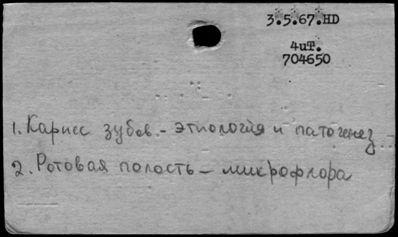 3.5.67.HD
4иТ.
704650
1. Кариес зубов. - этиология и патогенез
2. Ротовая полость - микрофлора